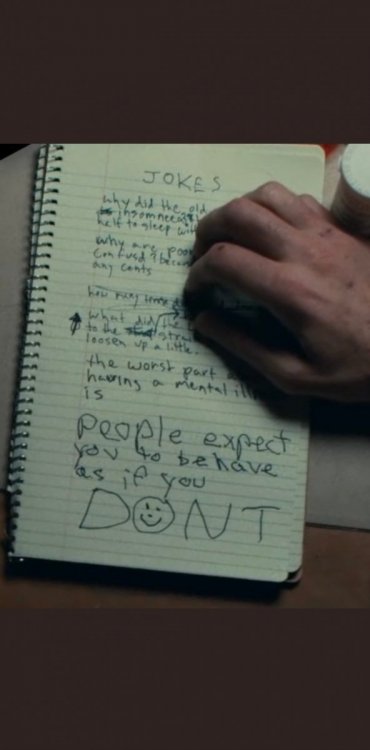 JOKES
why did the old
insomneea
to sleep
why are poor
Confusd? becau
any cents
how many
what did the
to the
loosen up a little.
the worst part
having a mental ill
is
people expect
you to behave
as if you
DONT